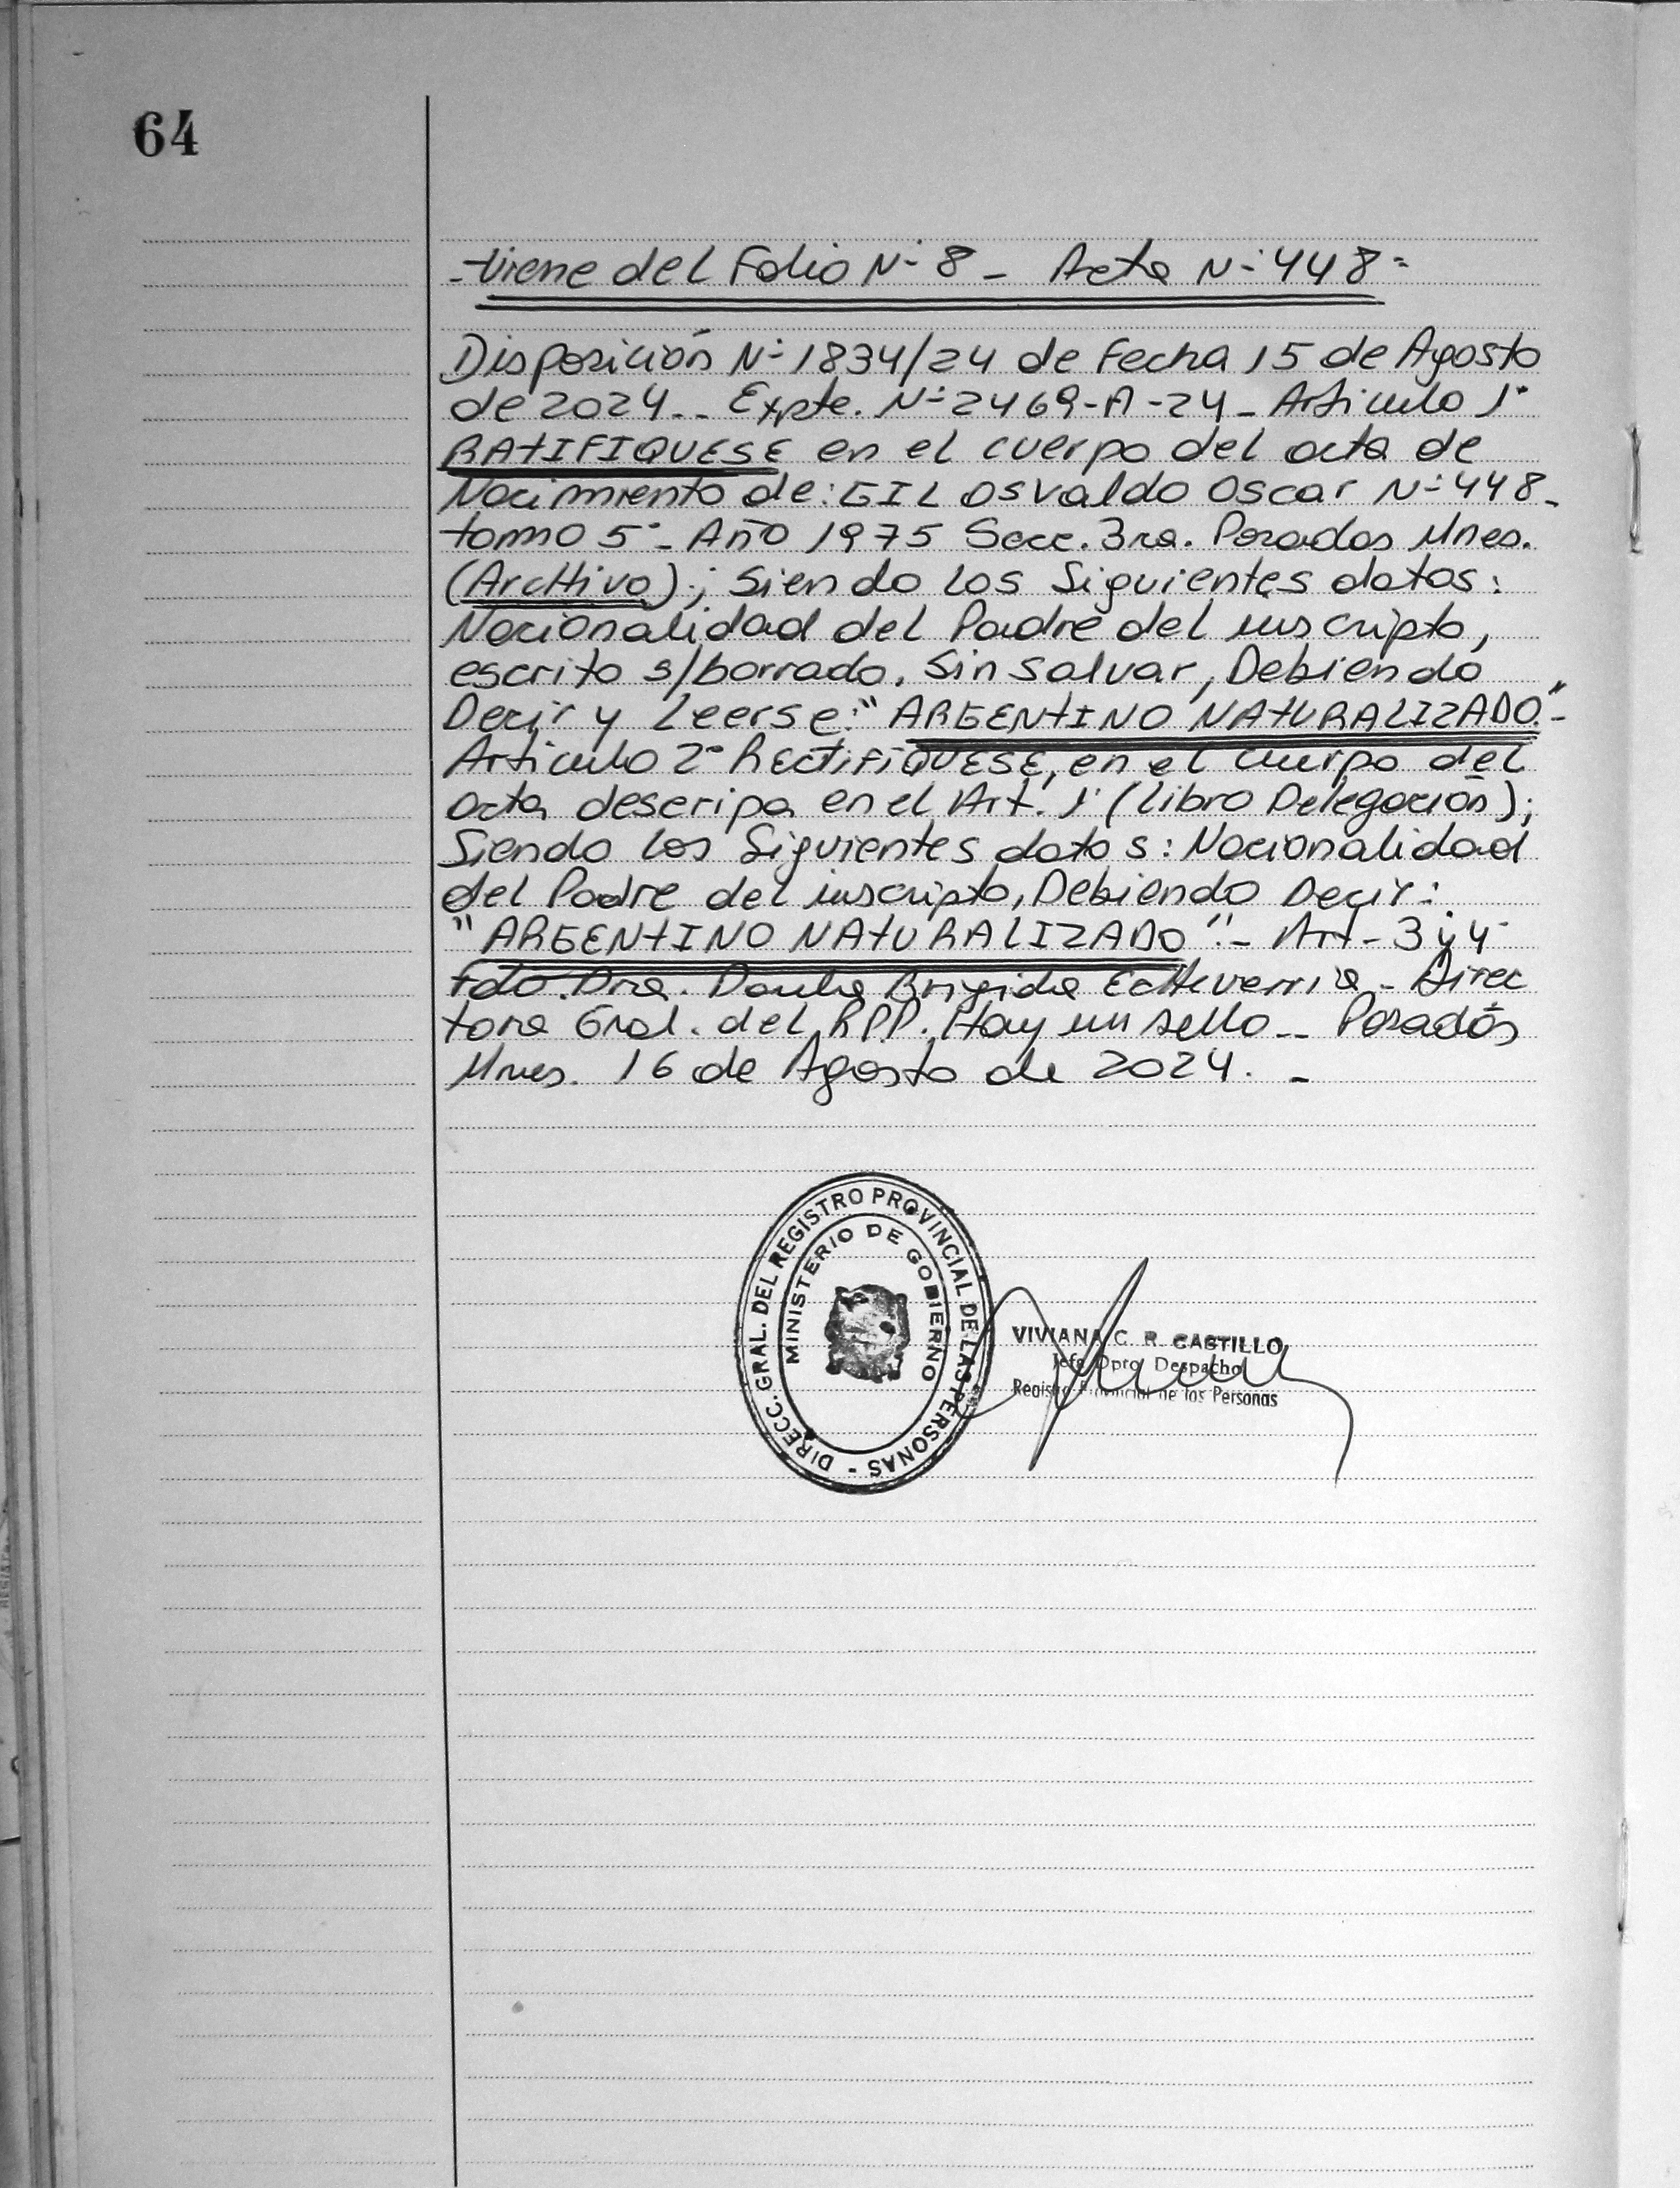 64
-Viene del Folio N° 8 - Acta N° 448=
Disposición N° 1834/24 de Fecha 15 de Agosto
de 2024-- Expte. N° 2469-A-24- Articulo 1°
RATIFIQUESE en el cuerpo del acta de
Nacimiento de: GIL Osvaldo Oscar N° 448-
tomo 5°- Año 1975 Secc. 3ra. Posadas Mnes.
(Archivo); Siendo los Siguientes datos:
Nacionalidad del Padre del inscripto,
escrito s/borrado, Sin Salvar, Debiendo
Decir y Leerse: "ARGENTINO NATURALIZADO"-
Articulo 2° RECTIFIQUESE, en el cuerpo del
acta descripa en el Art. 1° (Libro Delegación);
Siendo los Siguientes datos: Nacionalidad
del Padre del inscripto, Debiendo Decir:
"ARGENTINO NATURALIZADO"- Art- 3 y 4-
Fdo. Dra. Brigida Echeverria - Direc
tora Gral. del RPP. Hay un sello-- Posadas
Mnes. 16 de Agosto de 2024. -
DIRECC. GRAL. DEL REGISTRO PROVINCIAL DE LAS PERSONAS -
MINISTERIO DE GOBIERNO
VIVIANA C. R. CASTILLO
Jefe Dpto Despacho
Registro Provincial de las Personas